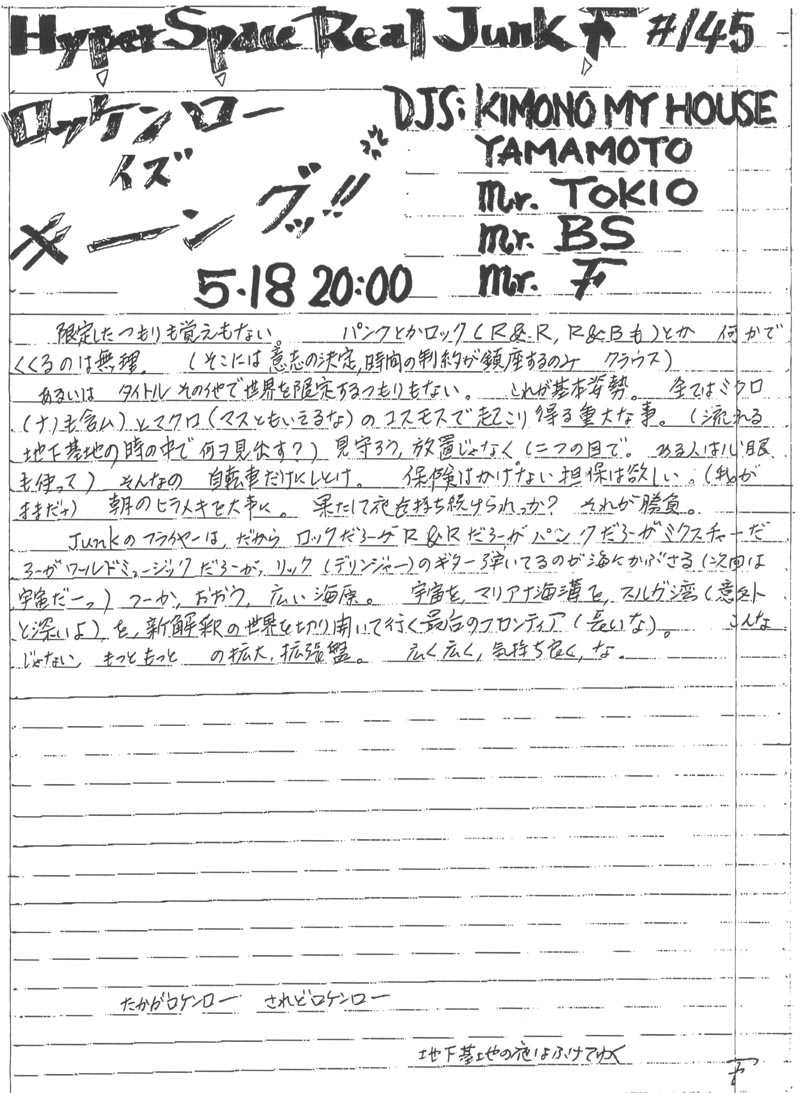 Hyper Space Real Junk F #145
ロッケンロー
イズ
キーングッ!!
DJS: KIMONO MY HOUSE
YAMAMOTO
Mr. TOKIO
Mr. BS
Mr. F
5.18 20:00
限定したつもりも覚えもない。 パンクとかロック(R&R, R&Bも)とか 何かで
くくるのは無理。 (そこには意志の決定,時間の制約が鎮座するのみ クラウス)
あるいは タイトルその他で世界を限定するつもりもない。 これが基本姿勢。 全てはミクロ
(ナノも含ム)とマクロ(マスともいえるな)のコスモスで起こり得る重大な事。 (流れる
地下基地の時の中で何ヲ見出す?) 見守ろう,放置じゃなく(二つの目で。 ある人は心眼
も使って) そんなの 自転車だけにしとけ。 保険はかけない担保は欲しい。(我が
ままだナ) 朝のヒラメキを大事に。 果たして夜を持ち続けられっか? それが勝負。
Junkのフライヤーは,だから ロックだろーがR&Rだろーがパンクだろーがミクスチャーだ
ろーがワールドミュージックだろーが,リック(デリンジャー)のギター弾いてるのが海にかぶさる(次回は
宇宙だーっ) つーか,おおう,広い海原。 宇宙を,マリアナ海溝を,スルガ湾(意外
と深いよ)を,新解釈の世界を切り開いて行く最后のフロンティア(長いな)。 こんな
じゃない,もっともっと の拡大,拡張盤。 広く広く,気持ち良く,な。
たかがロケンロー されどロケンロー
地下基地の夜はふけてゆく
F